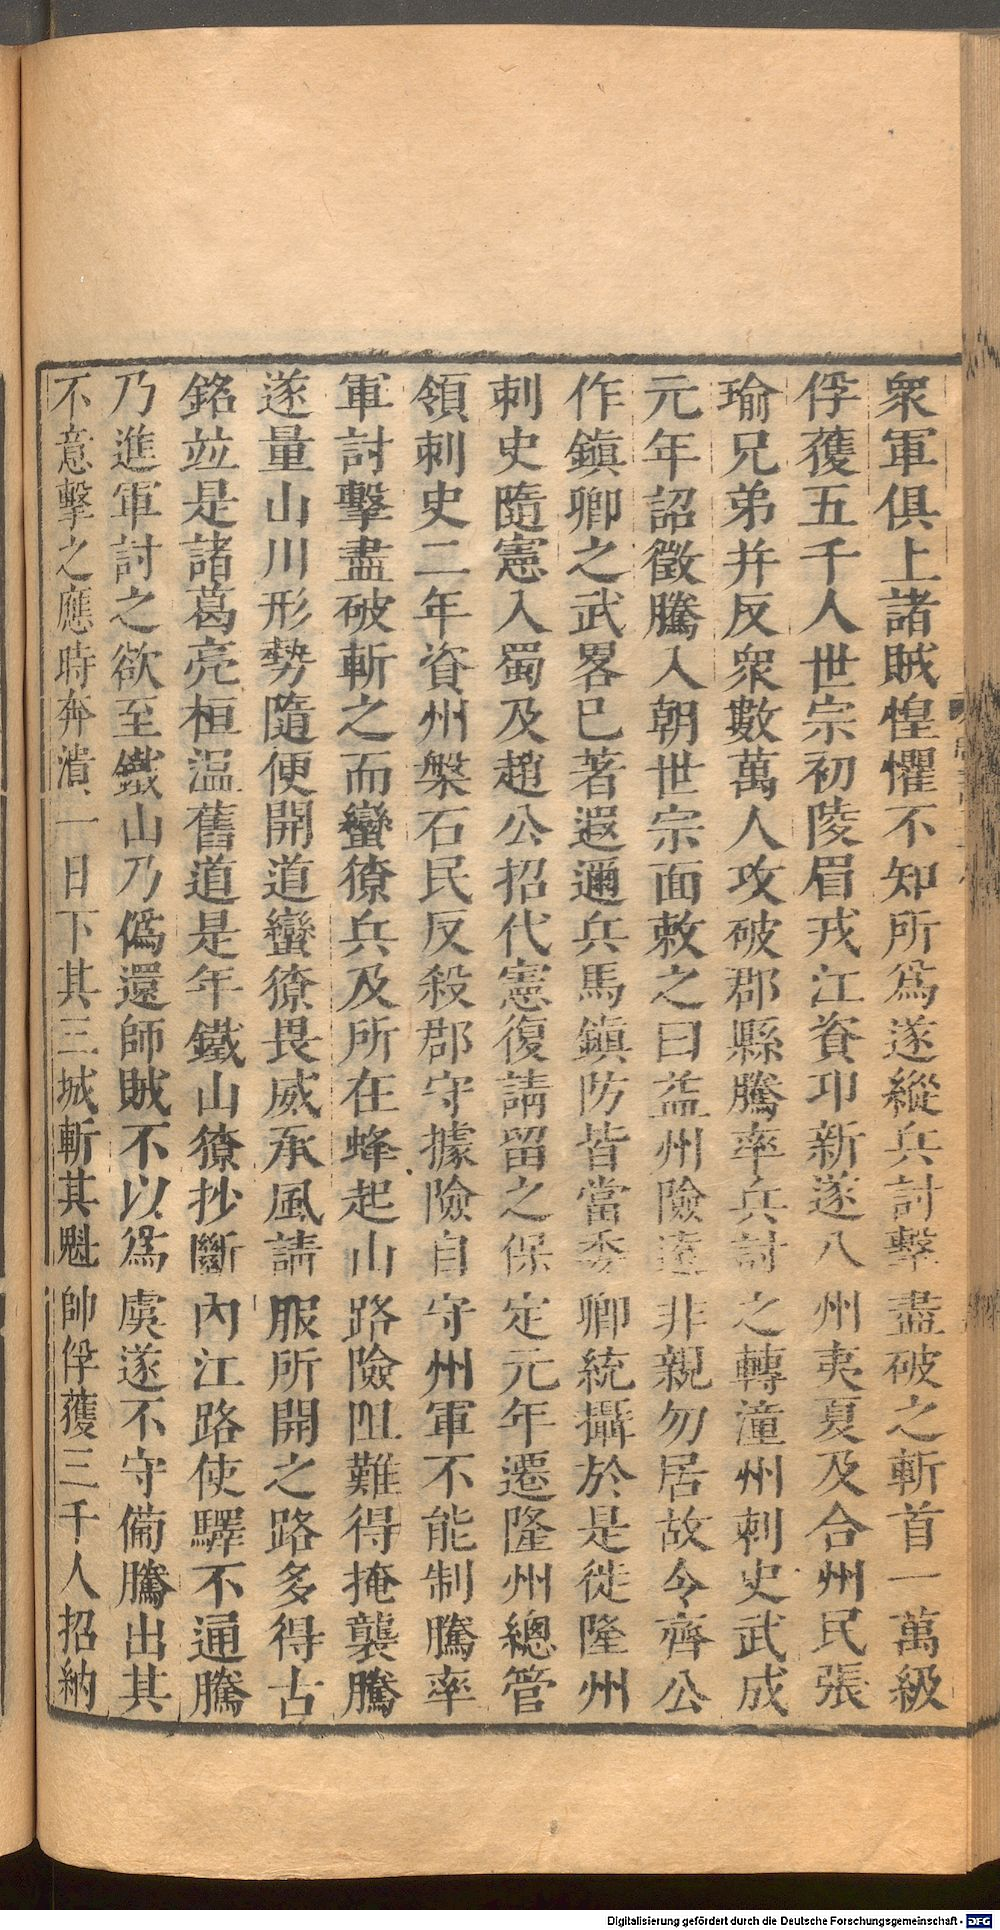 衆軍俱上諸賊惶懼不知所爲遂縱兵討擊盡破之斬首一萬級
俘獲五千人世宗初陵眉戎江資卭新遂八州夷夏及合州民張
瑜兄弟并反衆數萬人攻破郡縣騰率兵討之轉潼州刺史武成
元年詔徵騰入朝世宗面敕之曰益州險遠非親勿居故令齊公
作鎮卿之武畧已著遐邇兵馬鎮防皆當委卿統攝於是徙隆州
刺史隨憲入蜀及趙公招代憲復請留之保定元年遷隆州總管
領刺史二年資州槃石民反殺郡守據險自守州軍不能制騰率
軍討擊盡破斬之而蠻獠兵及所在蜂起山路險阻難得掩襲騰
遂量山川形勢隨便開道蠻獠畏威承風請服所開之路多得古
銘竝是諸葛亮桓溫舊道是年鐵山獠抄斷內江路使驛不通騰
乃進軍討之欲至鐵山乃僞還師賊不以爲虞遂不守備騰出其
不意擊之應時奔潰一日下其三城斬其魁帥俘獲三千人招納
Digitalisierung gefördert durch die Deutsche Forschungsgemeinschaft - DFG